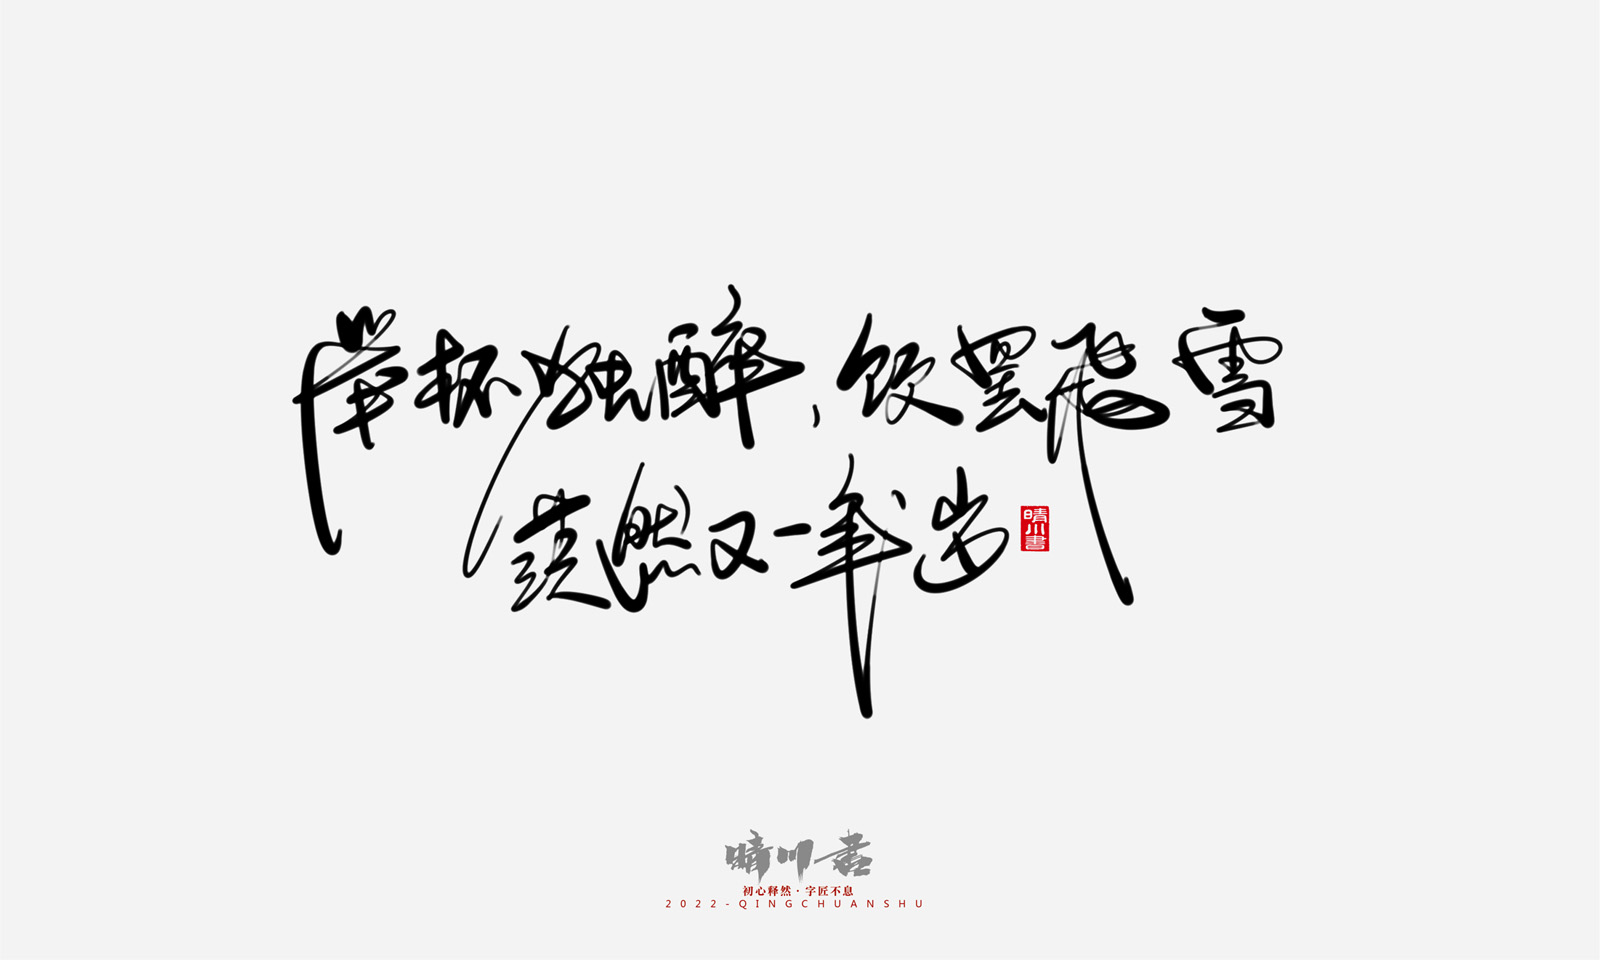 举杯独醉，饮罢飞雪
茫然又一年岁
晴川書
晴川书
初心释然·字匠不息
2022-QINGCHUANSHU